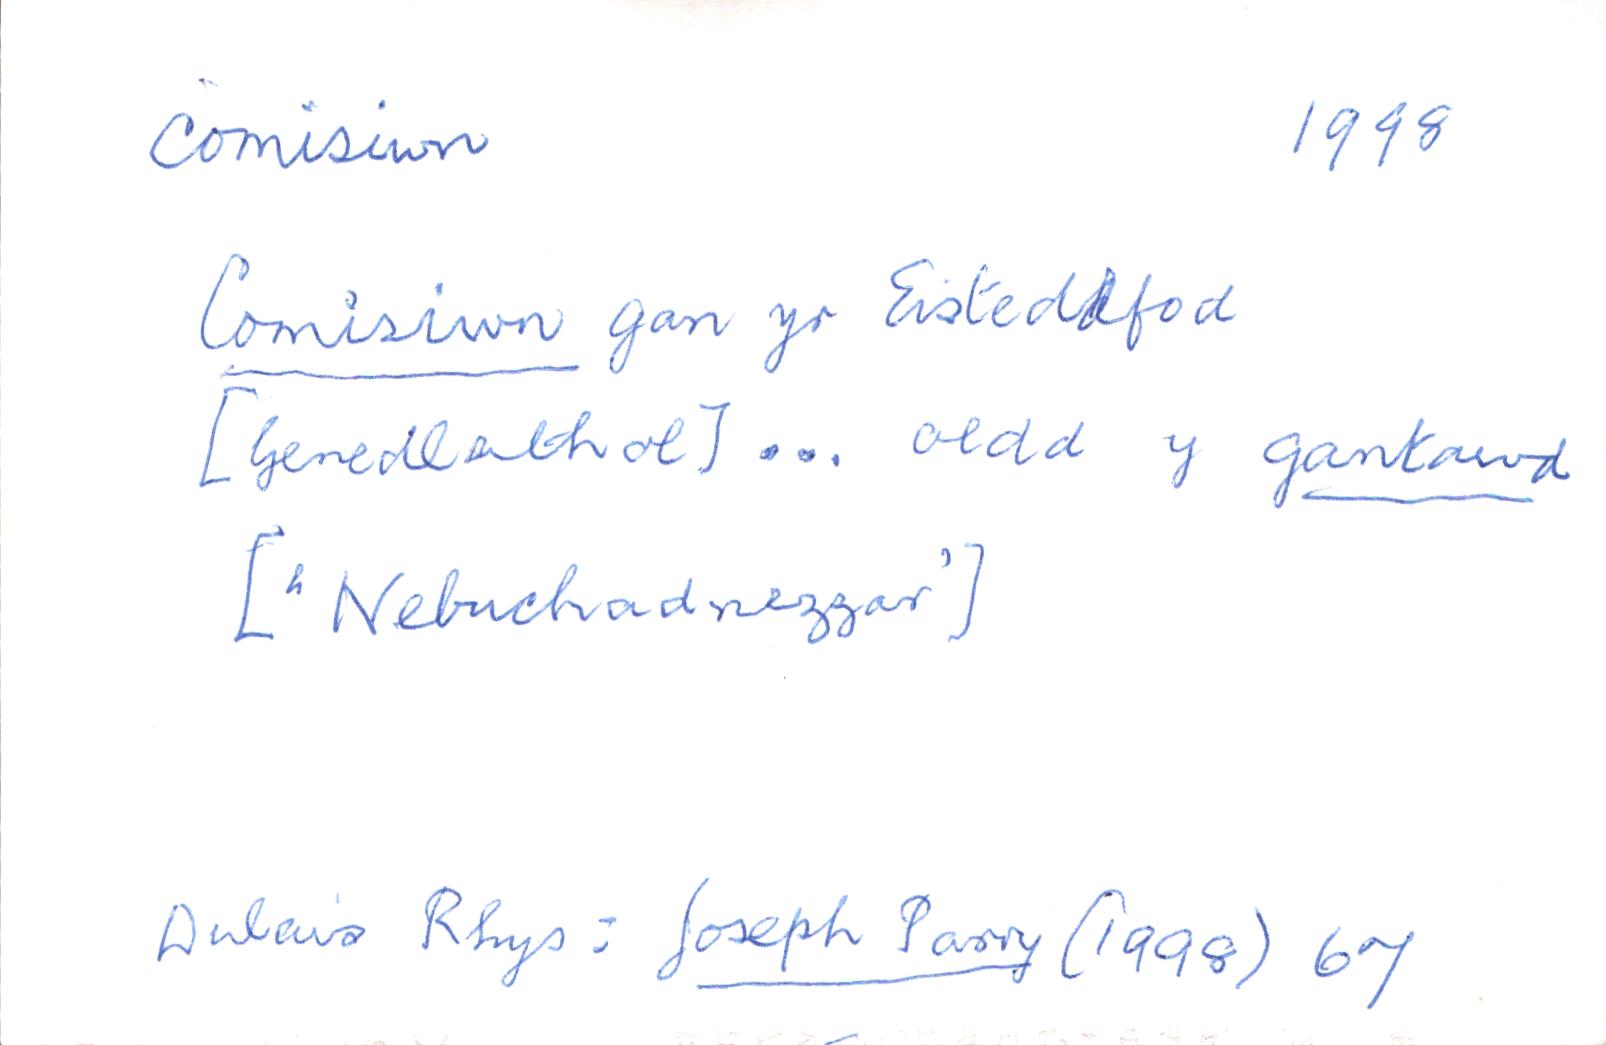 Comisiwn 1998
Comisiwn gan yr Eisteddfod
[Genedlaethol] ... oedd y gantawd
["Nebuchadnezzar']
Dulais Rhys: Joseph Parry (1998) 67